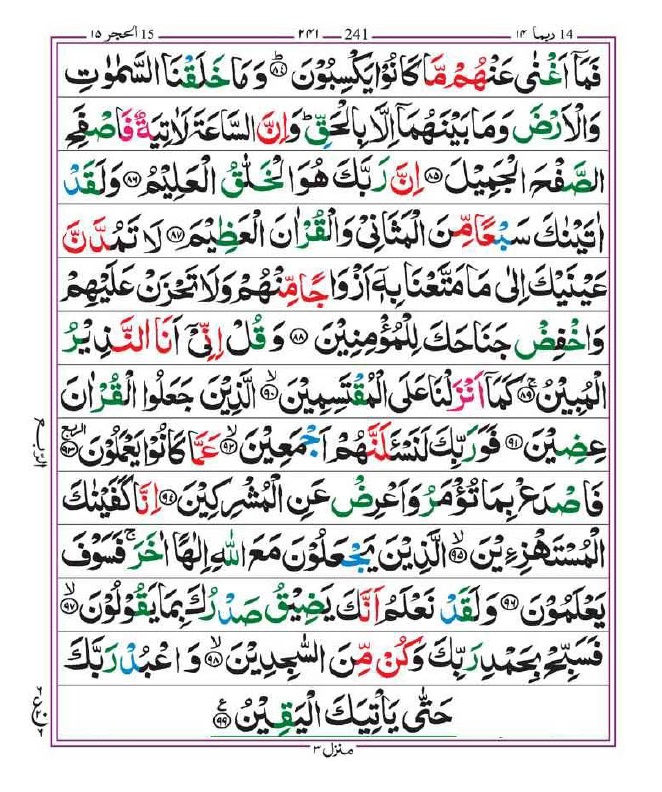 ١٤ ربما 14 241 ٢٤١ 15 الحجر ١٥
فَمَاۤ اَغْنٰى عَنْهُمْ مَّا كَانُوْا یَكْسِبُوْنَ ؕ۝۸۴ وَ مَا خَلَقْنَا السَّمٰوٰتِ
وَ الْاَرْضَ وَ مَا بَیْنَهُمَاۤ اِلَّا بِالْحَقِّ ؕ وَ اِنَّ السَّاعَةَ لَاٰتِیَةٌ فَاصْفَحِ
الصَّفْحَ الْجَمِیْلَ ۝۸۵ اِنَّ رَبَّكَ هُوَ الْخَلّٰقُ الْعَلِیْمُ ۝۸۶ وَ لَقَدْ
اٰتَیْنٰكَ سَبْعًا مِّنَ الْمَثَانِیْ وَ الْقُرْاٰنَ الْعَظِیْمَ ۝۸۷ لَا تَمُدَّنَّ
عَیْنَیْكَ اِلٰى مَا مَتَّعْنَا بِهٖۤ اَزْوَاجًا مِّنْهُمْ وَ لَا تَحْزَنْ عَلَیْهِمْ
وَ اخْفِضْ جَنَاحَكَ لِلْمُؤْمِنِیْنَ ۝۸۸ وَ قُلْ اِنِّیْۤ اَنَا النَّذِیْرُ
الْمُبِیْنُ ۚ۝۸۹ كَمَاۤ اَنْزَلْنَا عَلَى الْمُقْتَسِمِیْنَ ۙ۝۹۰ الَّذِیْنَ جَعَلُوا الْقُرْاٰنَ
عِضِیْنَ ۝۹۱ فَوَرَبِّكَ لَنَسْـَٔلَنَّهُمْ اَجْمَعِیْنَ ۙ۝۹۲ عَمَّا كَانُوْا یَعْمَلُوْنَ ۝۹۳ الربع
فَاصْدَعْ بِمَا تُؤْمَرُ وَ اَعْرِضْ عَنِ الْمُشْرِكِیْنَ ۝۹۴ اِنَّا كَفَیْنٰكَ
الْمُسْتَهْزِءِیْنَ ۙ۝۹۵ الَّذِیْنَ یَجْعَلُوْنَ مَعَ اللّٰهِ اِلٰهًا اٰخَرَ ۚ فَسَوْفَ
یَعْلَمُوْنَ ۝۹۶ وَ لَقَدْ نَعْلَمُ اَنَّكَ یَضِیْقُ صَدْرُكَ بِمَا یَقُوْلُوْنَ ۙ۝۹۷
فَسَبِّحْ بِحَمْدِ رَبِّكَ وَ كُنْ مِّنَ السّٰجِدِیْنَ ۙ۝۹۸ وَ اعْبُدْ رَبَّكَ
حَتّٰى یَاْتِیَكَ الْیَقِیْنُ ۝۹۹ ع
منزل ٣